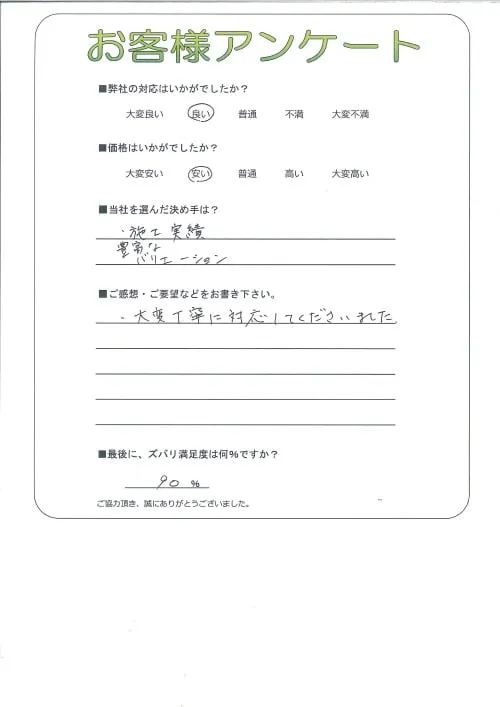 お客様アンケート
■弊社の対応はいかがでしたか？
大変良い 良い 普通 不満 大変不満
■価格はいかがでしたか？
大変安い 安い 普通 高い 大変高い
■当社を選んだ決め手は？
・施工実績
豊富な
バリエーション
■ご感想・ご要望などをお書き下さい。
・大変丁寧に対応してくださいました
■最後に、ズバリ満足度は何%ですか？
90 %
ご協力頂き、誠にありがとうございました。